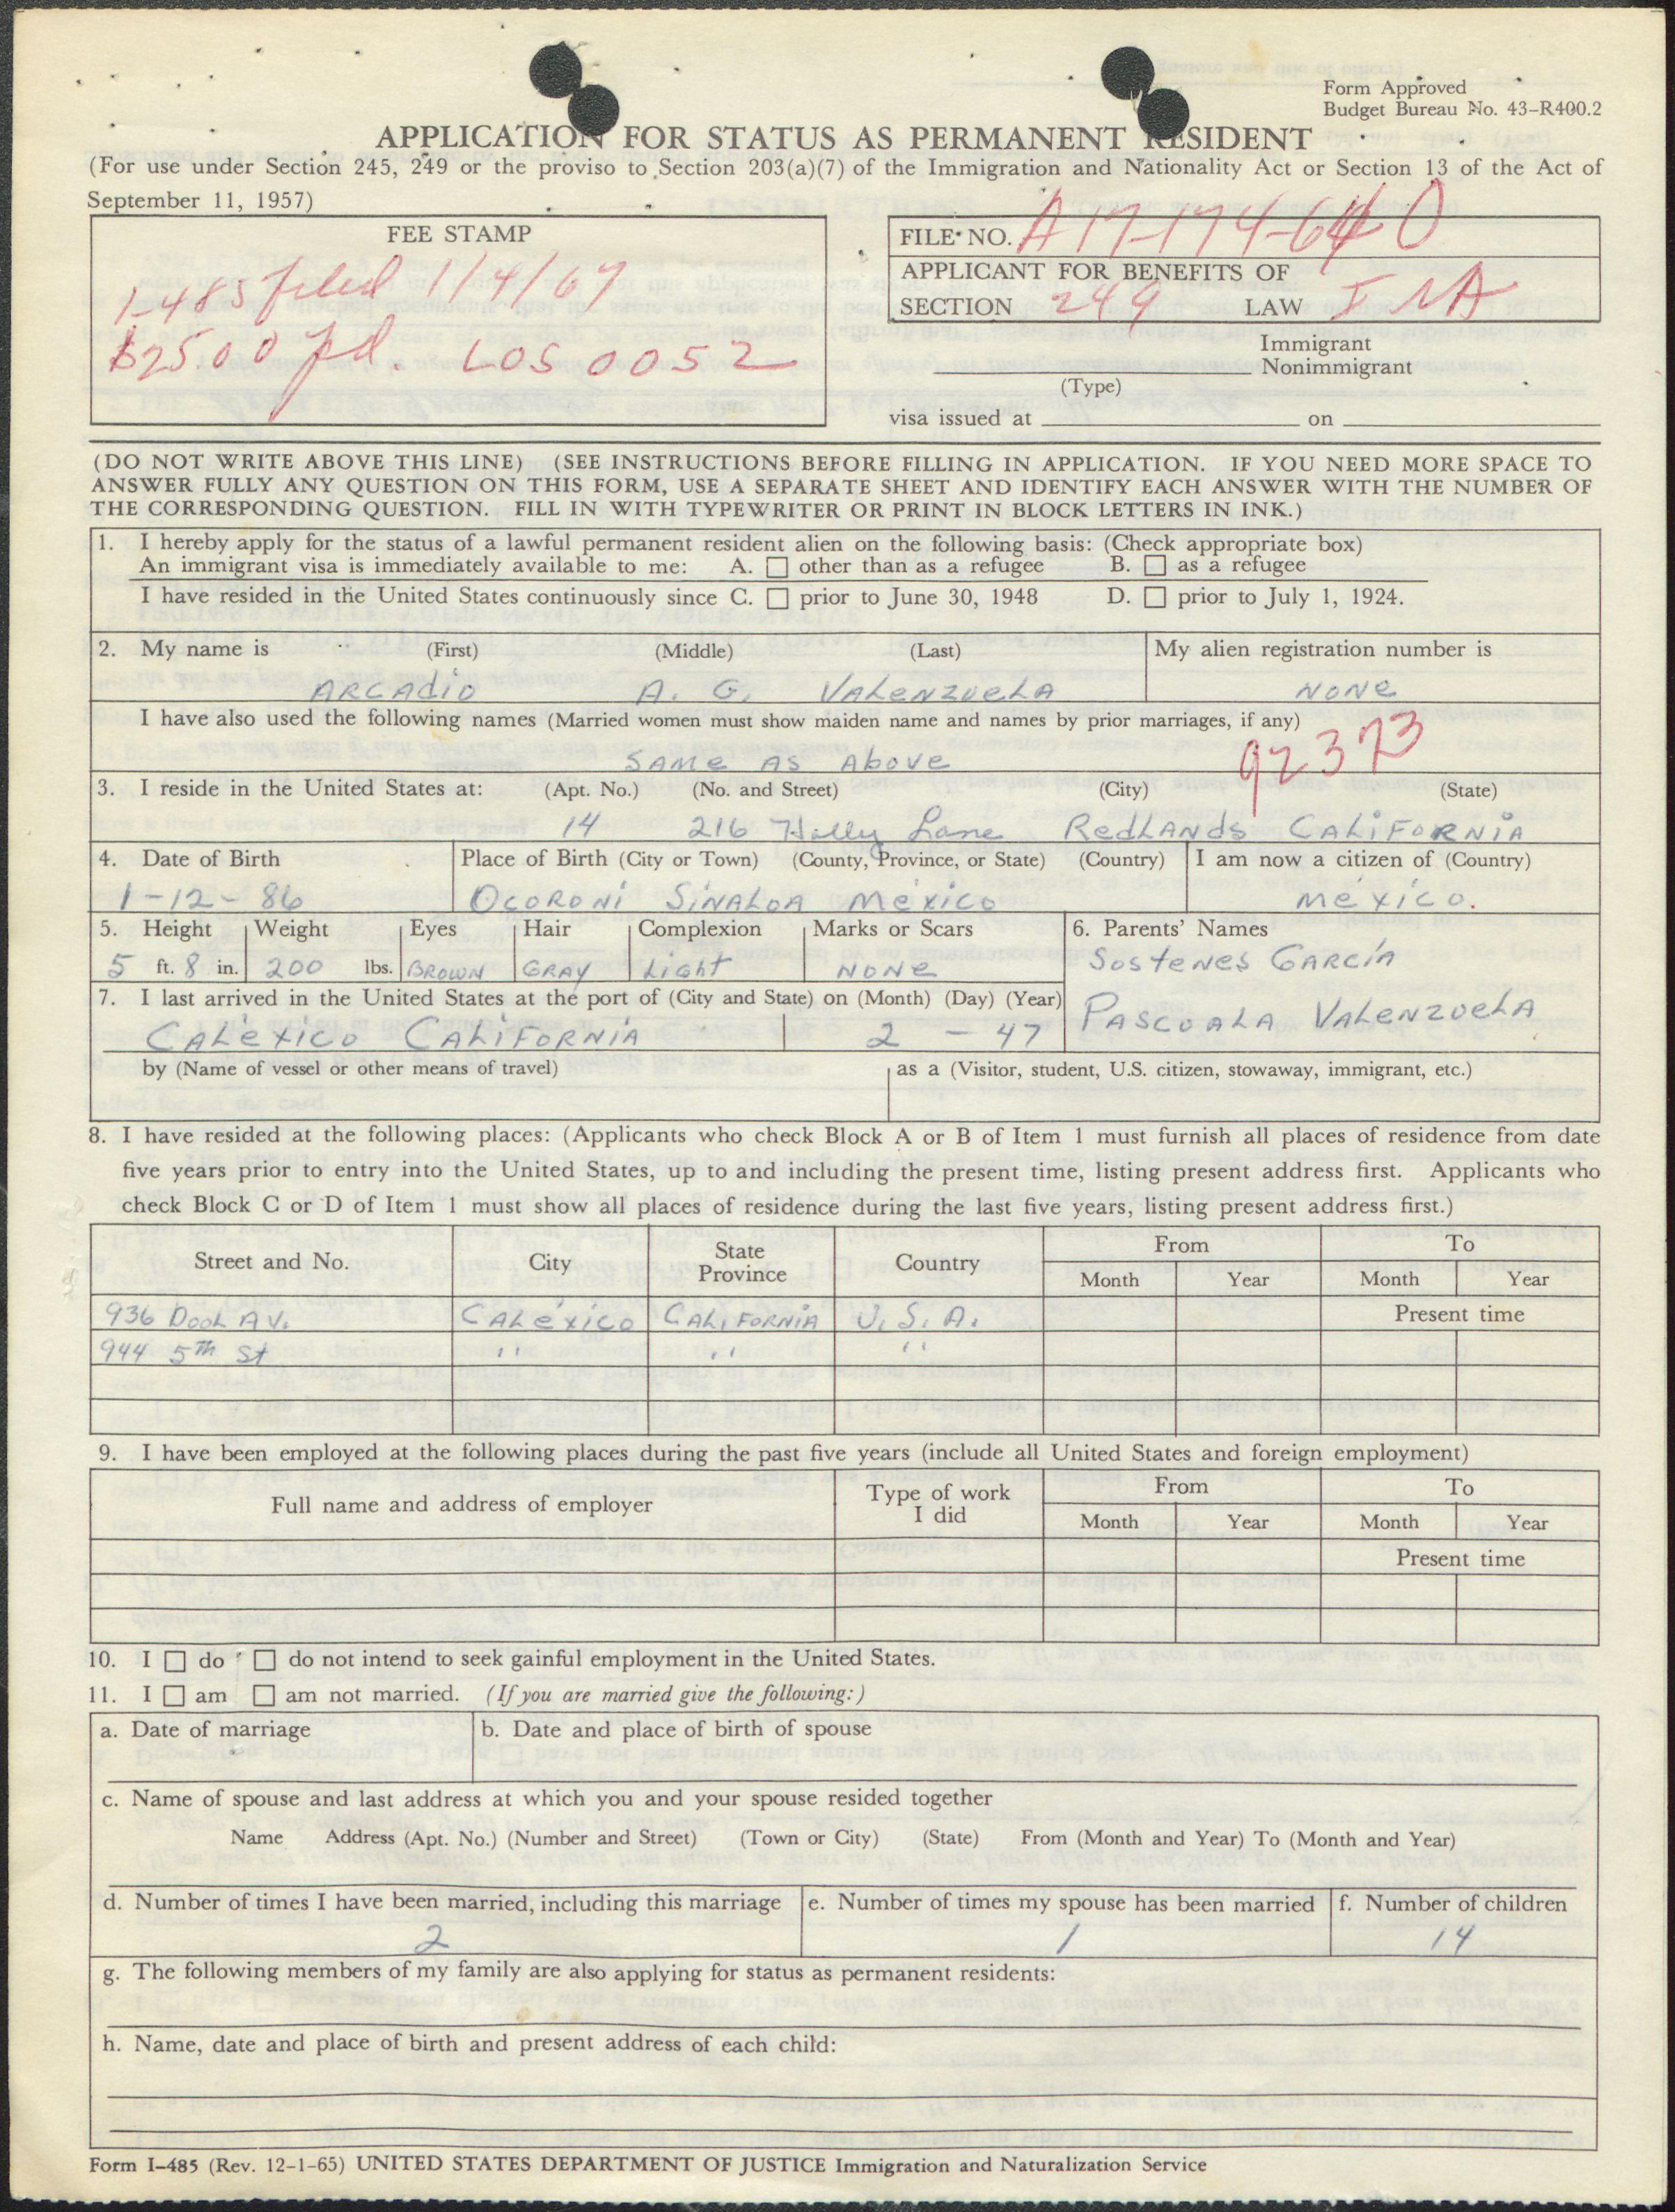 Form Approved
Budget Bureau No. 43-R400.2
APPLICATION FOR STATUS AS PERMANENT RESIDENT
(For use under Section 245, 249 or the proviso to Section 203(a)(7) of the Immigration and Nationality Act or Section 13 of the Act of
September 11, 1957)
FEE STAMP
I-485 filed 1/4/67
$25.00 pd. LOS 0052
FILE NO. A17-174-640
APPLICANT FOR BENEFITS OF
SECTION 249 LAW INA
Immigrant
Nonimmigrant
(Type)
visa issued at on
(DO NOT WRITE ABOVE THIS LINE) (SEE INSTRUCTIONS BEFORE FILLING IN APPLICATION. IF YOU NEED MORE SPACE TO
ANSWER FULLY ANY QUESTION ON THIS FORM, USE A SEPARATE SHEET AND IDENTIFY EACH ANSWER WITH THE NUMBER OF
THE CORRESPONDING QUESTION. FILL IN WITH TYPEWRITER OR PRINT IN BLOCK LETTERS IN INK.)
1. I hereby apply for the status of a lawful permanent resident alien on the following basis: (Check appropriate box)
An immigrant visa is immediately available to me: A. ☐ other than as a refugee B. ☐ as a refugee
I have resided in the United States continuously since C. ☐ prior to June 30, 1948 D. ☐ prior to July 1, 1924.
2. My name is (First) (Middle) (Last) My alien registration number is
ARCAdio A. G. VALeNZUeLA NONe
I have also used the following names (Married women must show maiden name and names by prior marriages, if any)
SAMe AS Above
92373
3. I reside in the United States at: (Apt. No.) (No. and Street) (City) (State)
14 216 Holly Lane RedLANds CALiFORNiA
4. Date of Birth Place of Birth (City or Town) (County, Province, or State) (Country) I am now a citizen of (Country)
1-12-86 OCORONi SiNALOA México México.
5. Height Weight Eyes Hair Complexion Marks or Scars 6. Parents' Names
5 ft. 8 in. 200 lbs. BROWN GRAY Light NONe
SosteNes GARCíA
7. I last arrived in the United States at the port of (City and State) on (Month) (Day) (Year)
PASCUALA VALeNZUeLA
CALexico CALiFORNiA 2 - 47
by (Name of vessel or other means of travel) as a (Visitor, student, U.S. citizen, stowaway, immigrant, etc.)
8. I have resided at the following places: (Applicants who check Block A or B of Item 1 must furnish all places of residence from date
five years prior to entry into the United States, up to and including the present time, listing present address first. Applicants who
check Block C or D of Item 1 must show all places of residence during the last five years, listing present address first.)
Street and No. City State Province Country From To
Month Year Month Year
936 DooL AV. CALéxico CALiFORNiA U.S.A. Present time
944 5th St " " "
9. I have been employed at the following places during the past five years (include all United States and foreign employment)
Full name and address of employer Type of work I did From To
Month Year Month Year
Present time
10. I ☐ do ☐ do not intend to seek gainful employment in the United States.
11. I ☐ am ☐ am not married. (If you are married give the following:)
a. Date of marriage b. Date and place of birth of spouse
c. Name of spouse and last address at which you and your spouse resided together
Name Address (Apt. No.) (Number and Street) (Town or City) (State) From (Month and Year) To (Month and Year)
d. Number of times I have been married, including this marriage e. Number of times my spouse has been married f. Number of children
2 1 14
g. The following members of my family are also applying for status as permanent residents:
h. Name, date and place of birth and present address of each child:
Form I-485 (Rev. 12-1-65) UNITED STATES DEPARTMENT OF JUSTICE Immigration and Naturalization Service